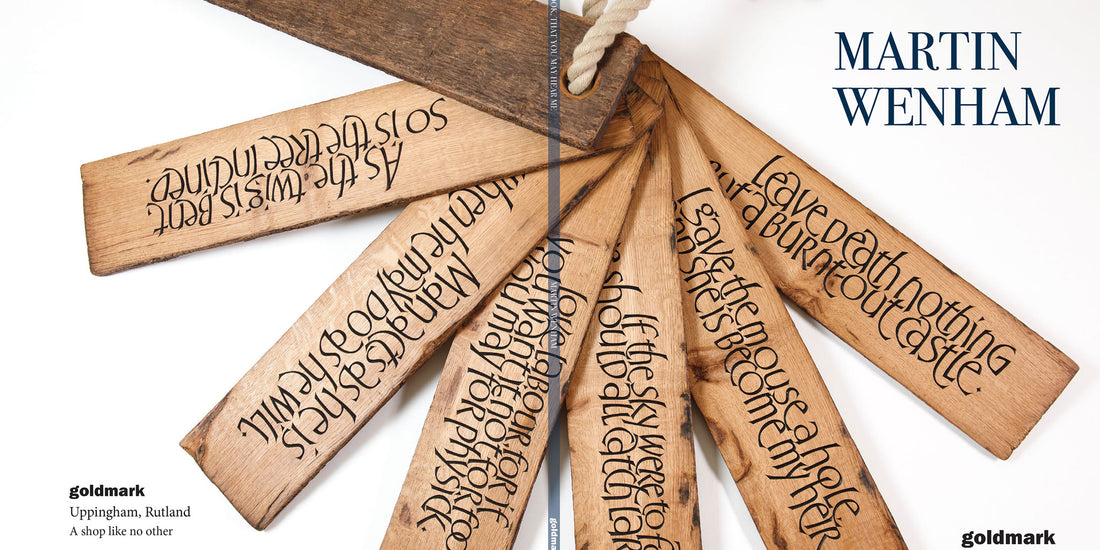 MARTIN
WENHAM
OOK, THAT YOU MAY HEAR ME
MARTIN WENHAM
goldma
As the twig is Bent
so is the tree inclined.
Man acts as he is
when he may do as he will.
love laBOUR for if
you want it not for foo
you may for physick
If the sky were to fa
should all catch lar
I gave the mouse a hole
she is Become my heir
leave Death nothing
But a BURNt-out castle.
goldmark
Uppingham, Rutland
A shop like no other
goldmark